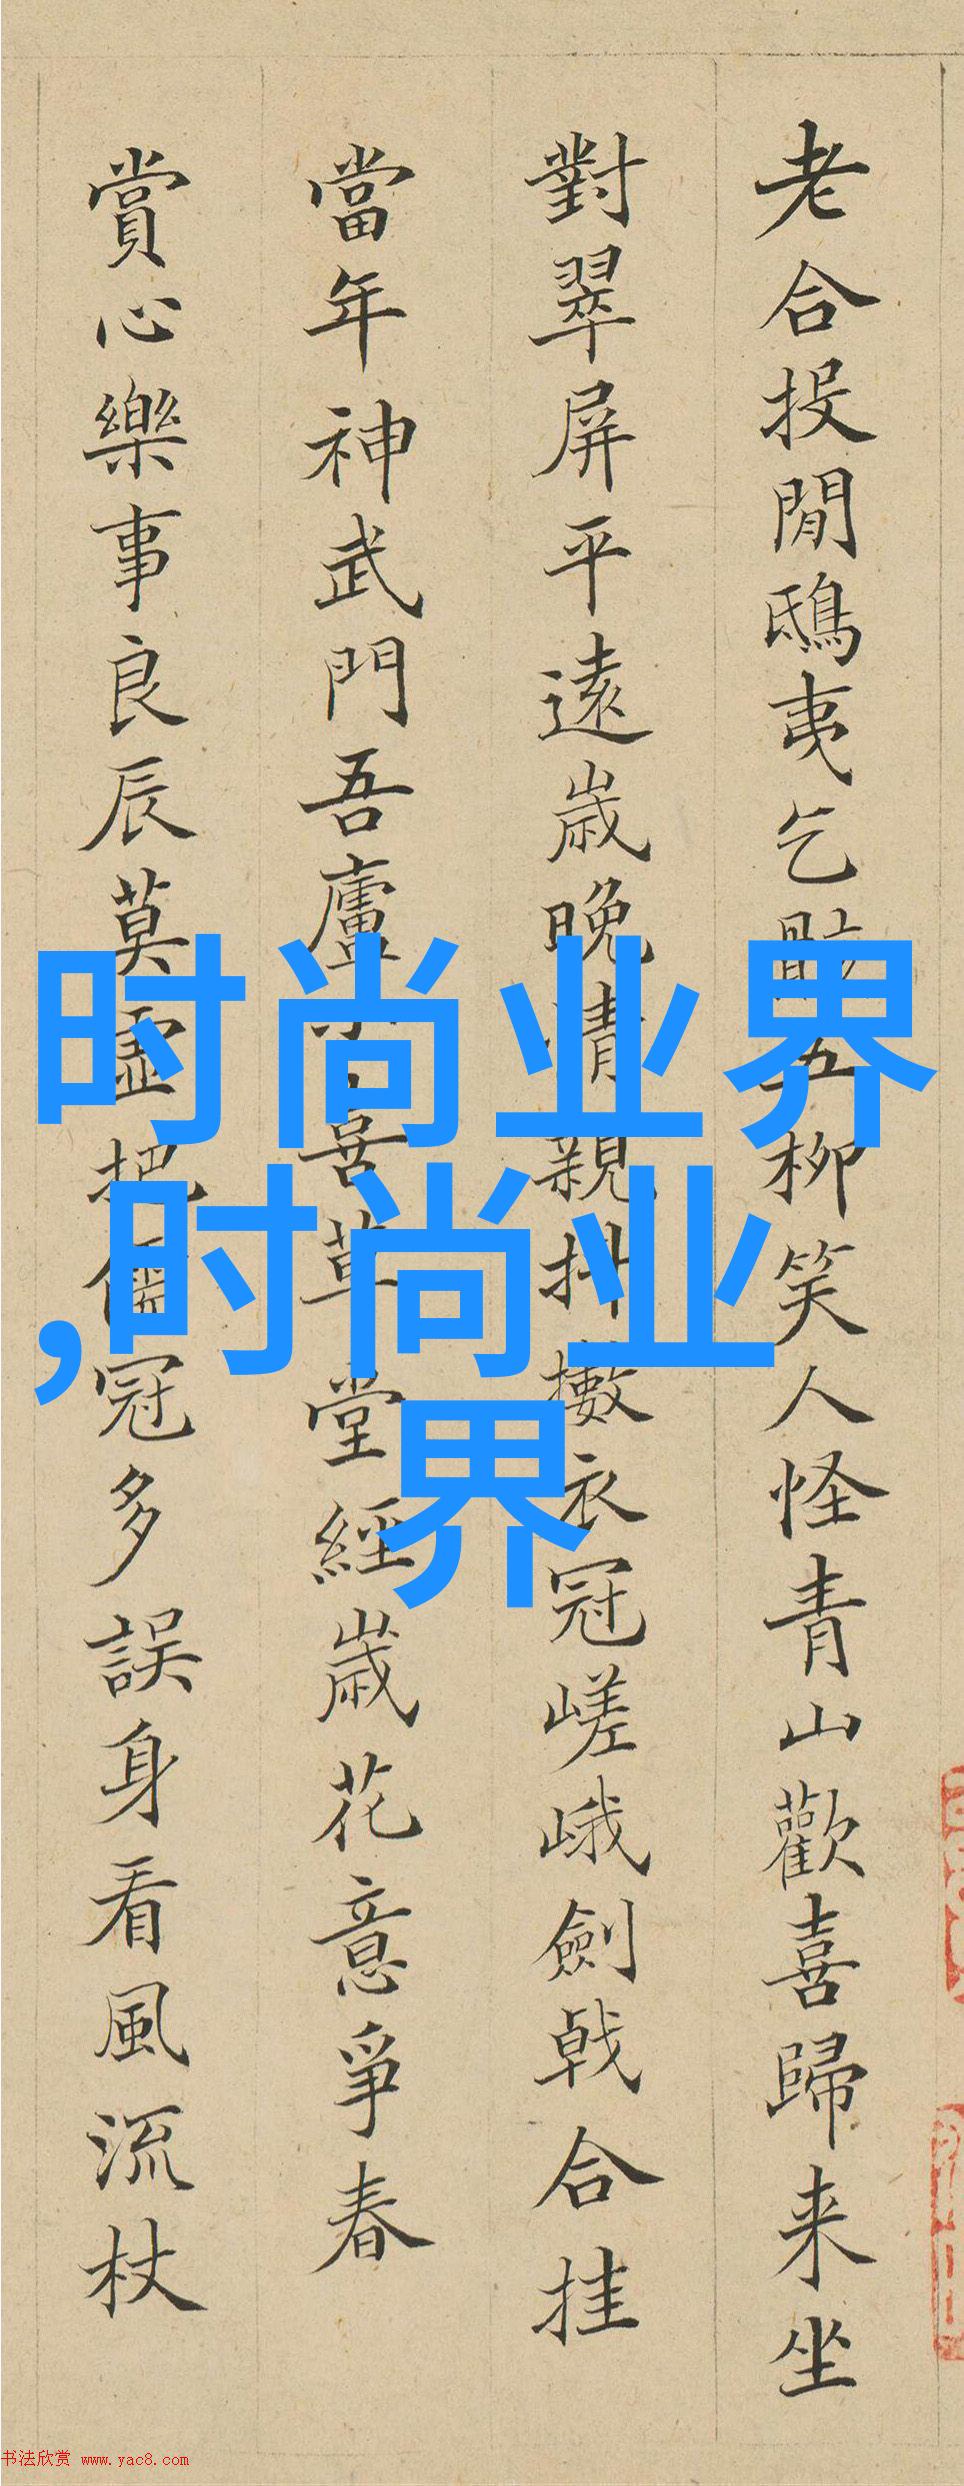 老合投閒鴟夷乞骸五柳笑人怪青山歡喜歸来坐
對翠屏平遠歲晚情親抖擻衣冠嵯峨劍戟合挂
當年神武門吾廬吾草堂經歲花意爭春
賞心樂事良辰莫虛把儒冠多誤身看風流杖
时尚业界
,时尚业
界
书法欣赏 www.yac8.com